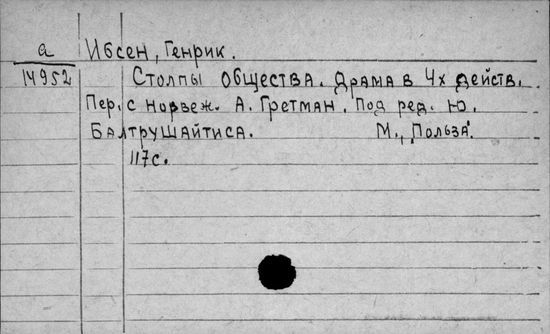 а Ибсен, Генрик.
14952 Столпы общества. Драма в 4х действ.
Пер. с норвеж. А. Гретман. Под ред. Ю.
Балтрушайтиса. М., „Польза".
117с.